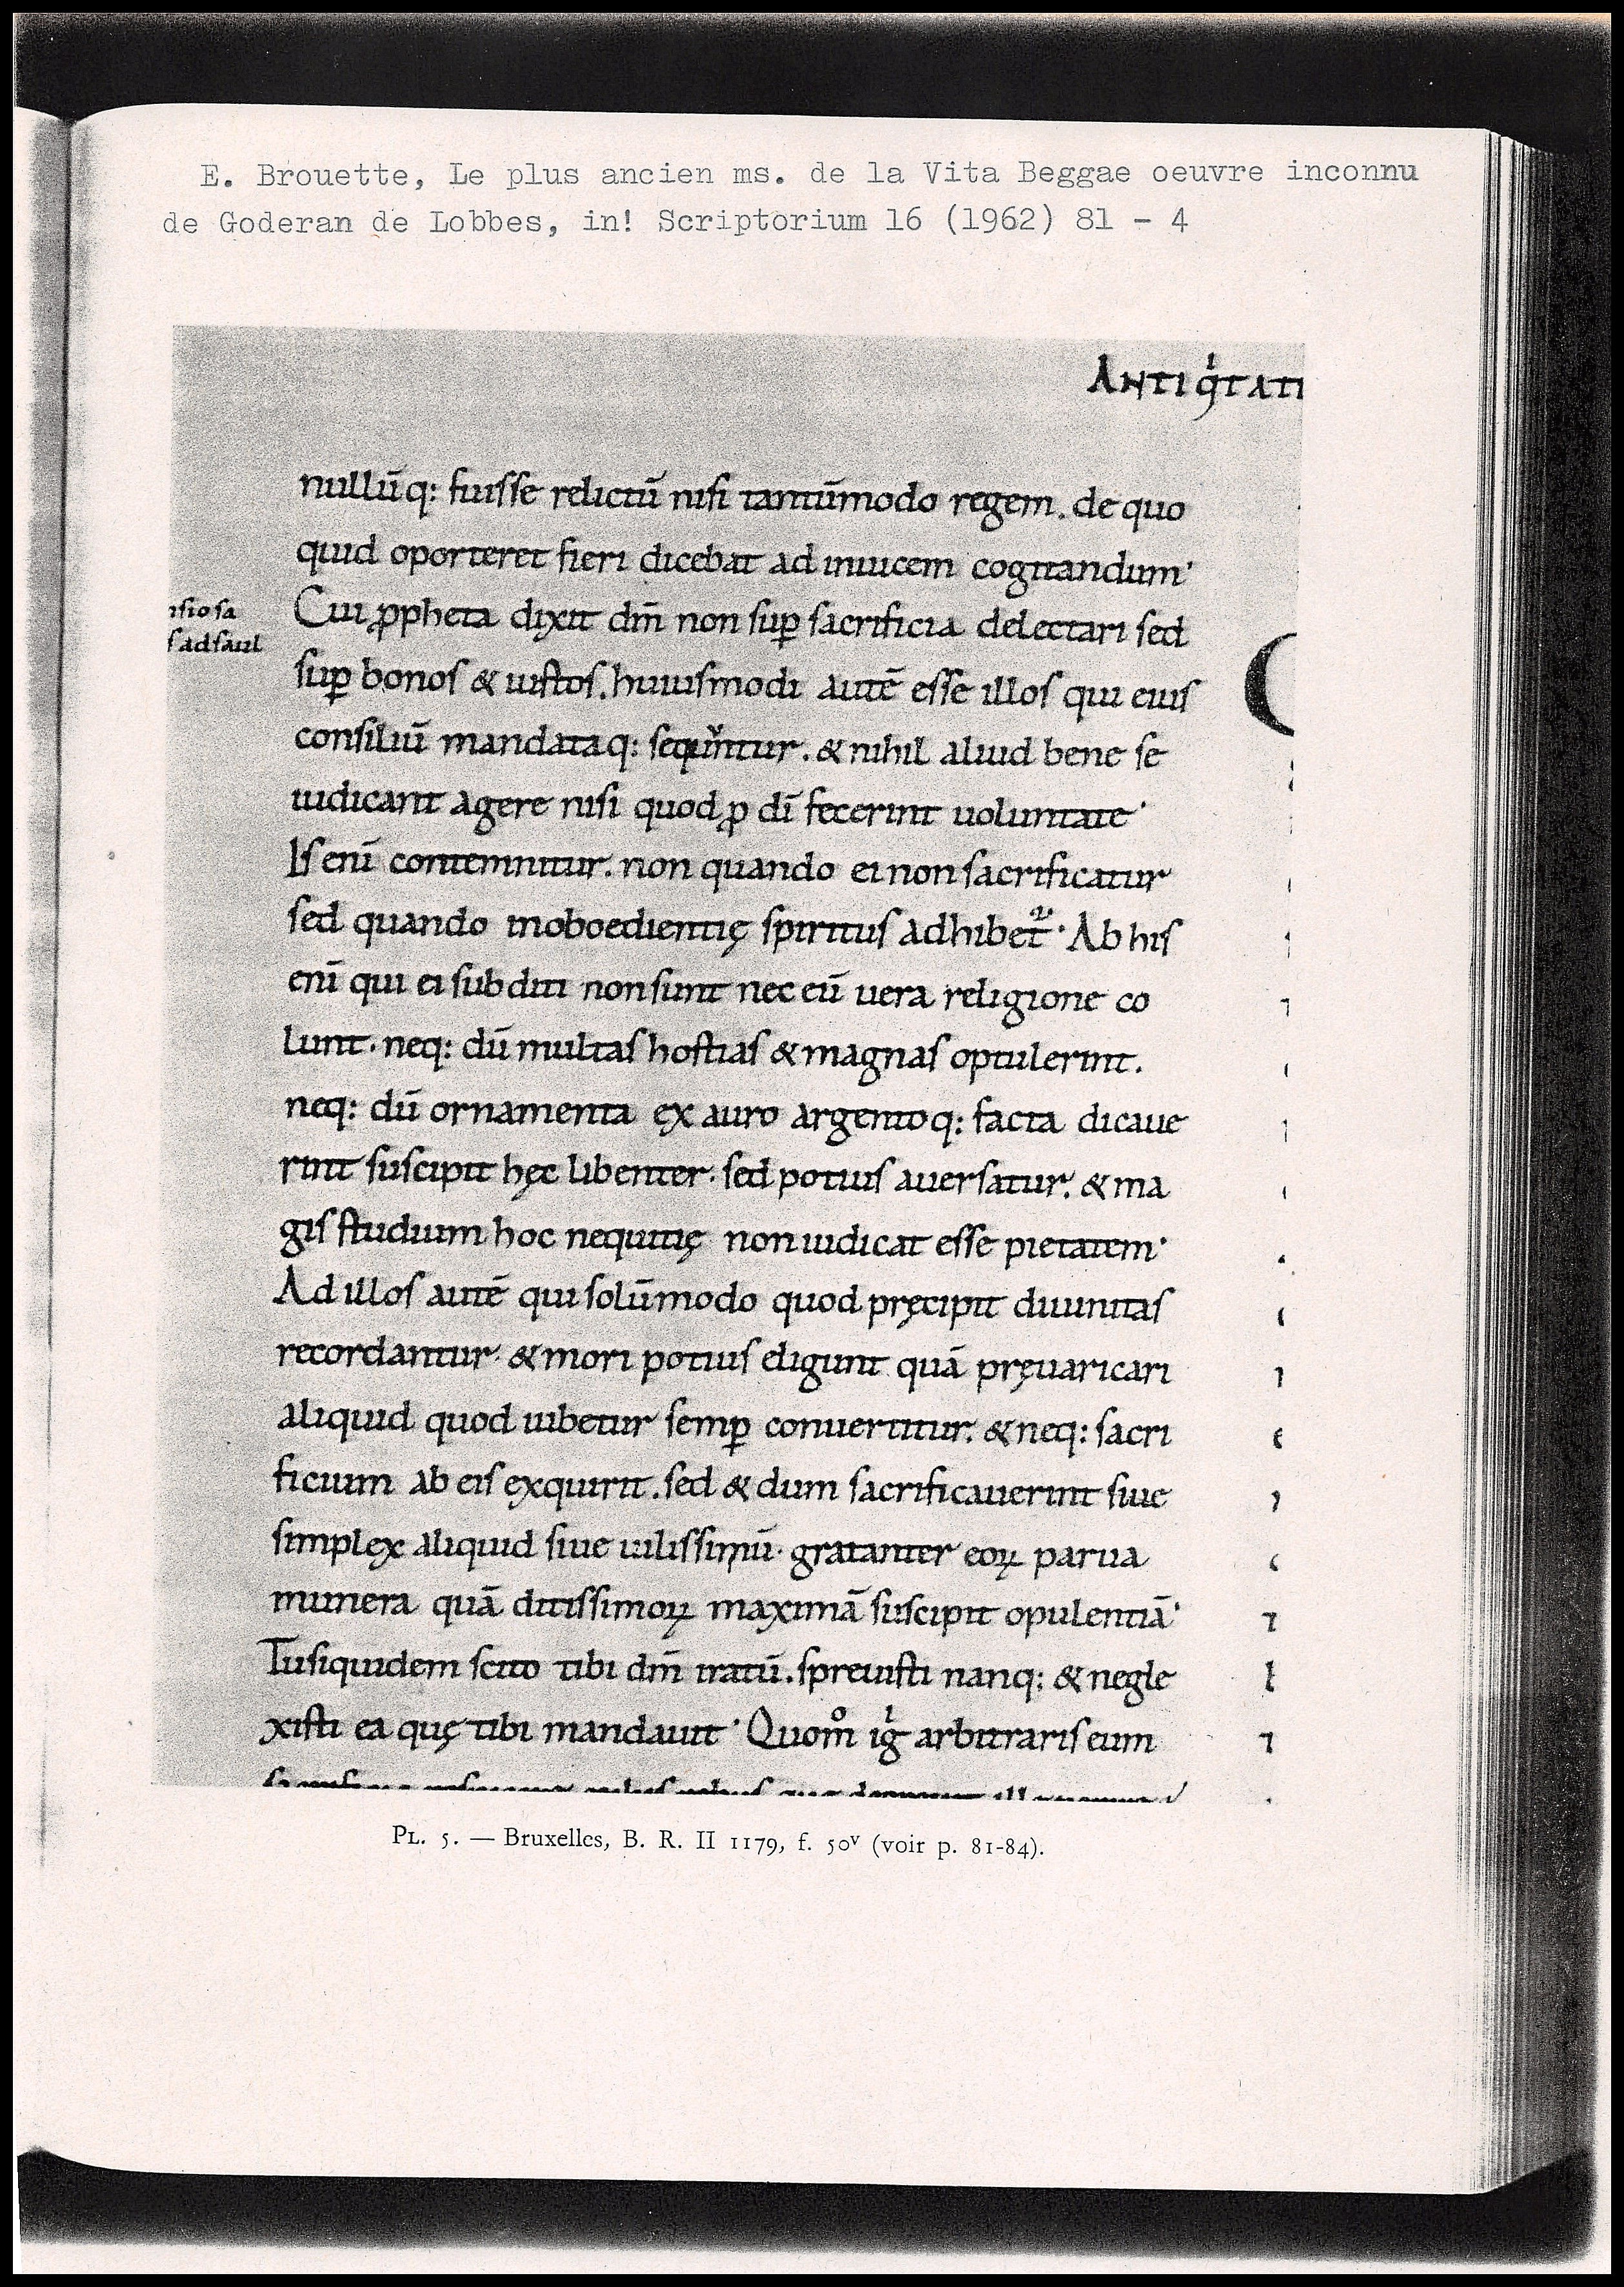 E. Brouette, Le plus ancien ms. de la Vita Beggae oeuvre inconnu
de Goderan de Lobbes, in! Scriptorium 16 (1962) 81 - 4
ANTIQͥTATI
nullūq: fuisse relictū nisi tantūmodo regem. de quo
quid oporteret fieri dicebat ad inuicem cogitandum·
Cui ꝓpheta dixit dm̄ non suꝑ sacrificia delectari sed
suꝑ bonos & iustos. huiusmodi autē esse illos qui eius
consiliū mandataq: sequntur. & nihil aliud bene se
iudicant agere nisi quod ꝓ dī fecerint uoluntate·
Is enī contemnitur. non quando ei non sacrificatur
sed quando inoboedientię spiritus adhibet᷑· Ab his
enī qui ei subditi non sunt nec eū uera religione co
lunt· neq: dū multas hostias & magnas optulerint.
neq: dū ornamenta ex auro argentoq: facta dicaue
rint suscipit hęc libenter· sed potius auersatur. & ma
gis studium hoc nequitię non iudicat esse pietatem·
Ad illos autē qui solūmodo quod pręcipit diuinitas
recordantur· & mori potius eligunt quā pręuaricari
aliquid quod iubetur semꝑ conuertitur. & neq: sacri
ficium ab eis exquirit. sed & dum sacrificauerint siue
simplex aliquid siue uilissimū· gratanter eoꝝ parua
munera quā ditissimoꝝ maximā suscipit opulentiā·
Tu siquidem scito tibi dm̄ iratū. spreuisti nanq: & negle
xisti ea quę tibi mandauit· Quom̊ igͥ arbitraris eum
nsio sa
s ad saul
PL. 5. — Bruxelles, B. R. II 1179, f. 50ᵛ (voir p. 81-84).